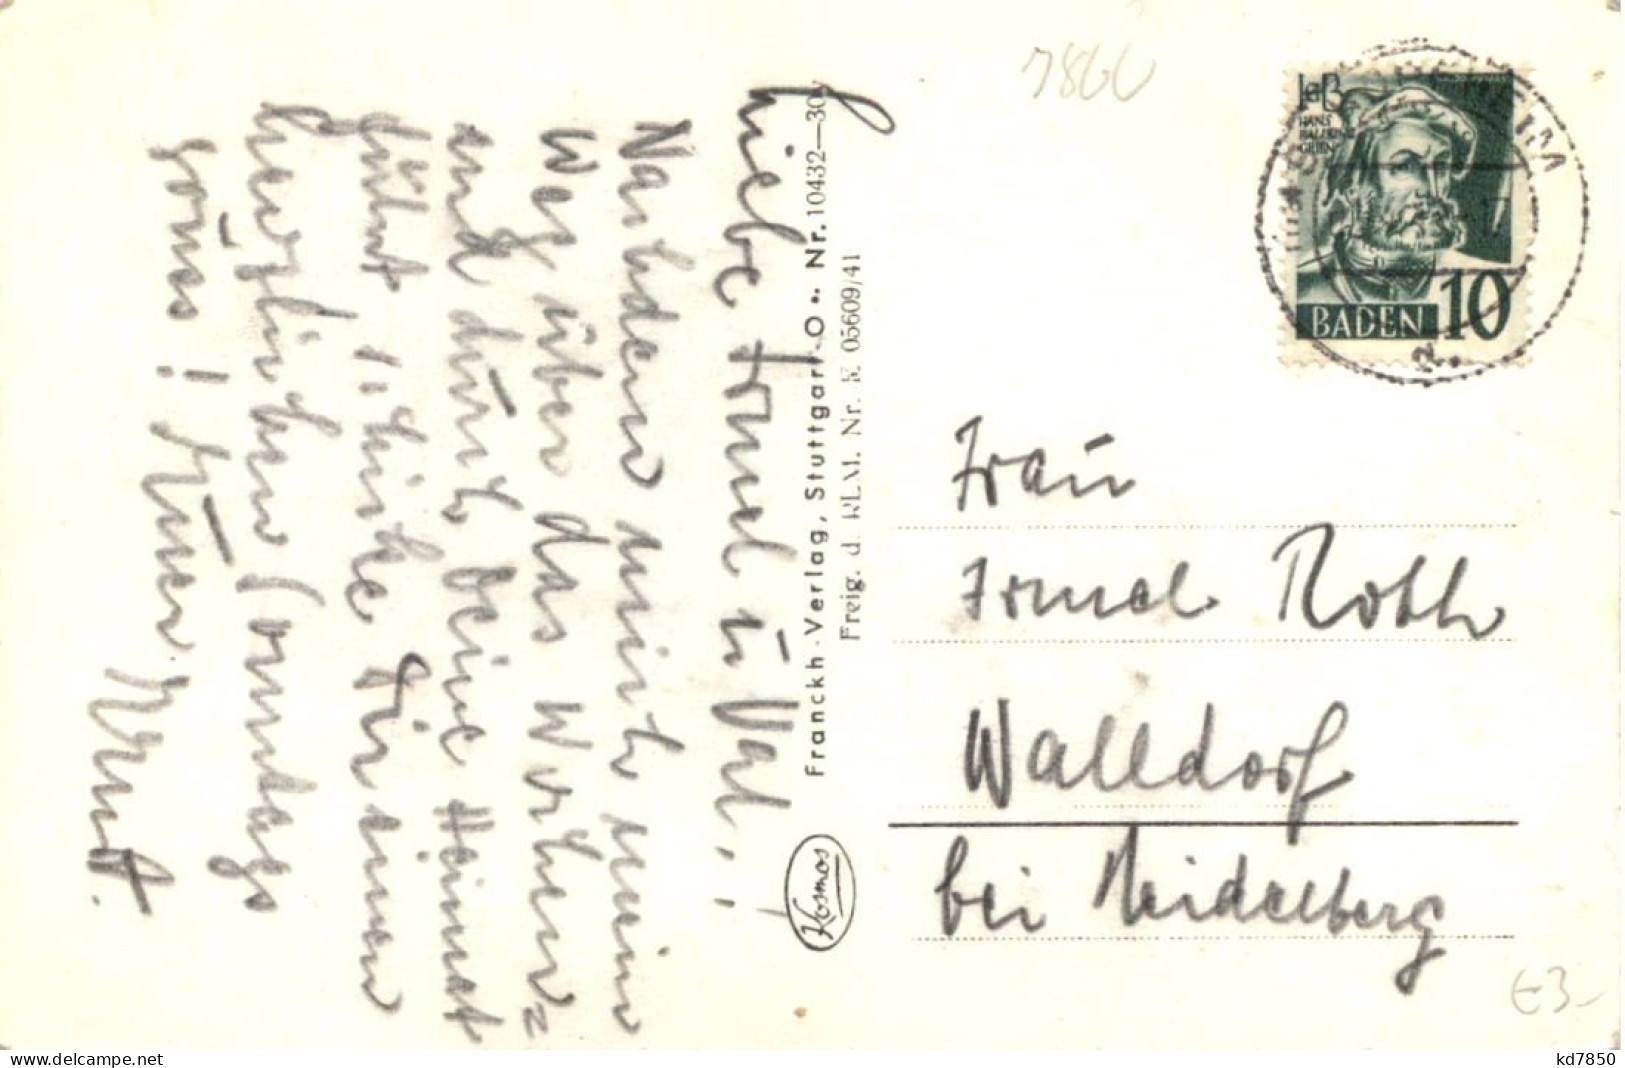 Liebe Irmel u. Val.!
Nachdem mich mein
Weg über das Wochen=
end durch Deine Heimat
führt, schicke Dir einen
herzlichen Sonntags
gruss! Euer
Knut.
Franckh-Verlag, Stuttgart-O •• Nr. 10432—30y
Freig. d. RLM. Nr. E 05609/41
Kosmos
7800
HANS
BALDUNG
GRIEN
BADEN 10
Frau
Irmel Roth
Walldorf
bei Heidelberg
€3-
delcampe.net
kd7850